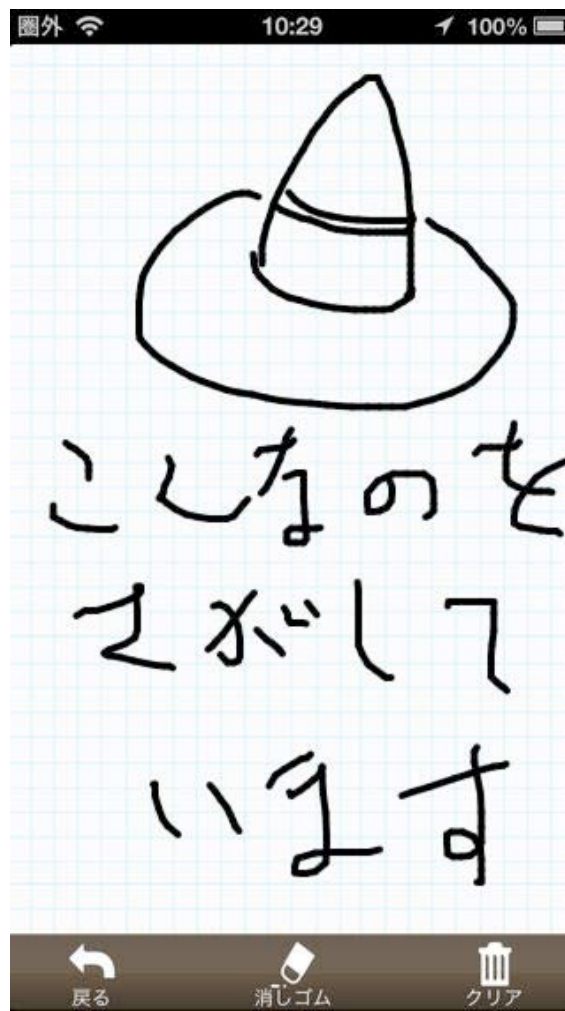 圏外 10:29 100%
こんなのを
さがして
います
戻る 消しゴム クリア